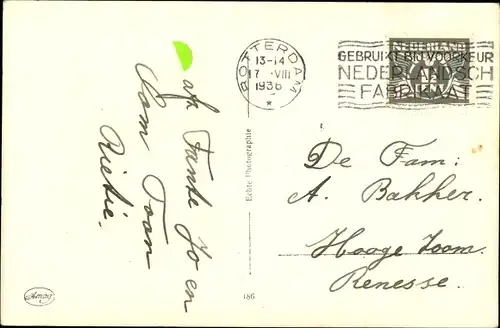 Dag Tante Jo en
Oom Toon
Rietie.
Echte Photographie
186
Amag
ROTTERDAM
13-14
17 VIII
1936
NEDERLAND
GEBRUIKT BIJ VOORKEUR
NEDERLANDSCH
FABRIKAAT
De Fam:
A. Bakker.
Hooge Zoom.
Renesse.